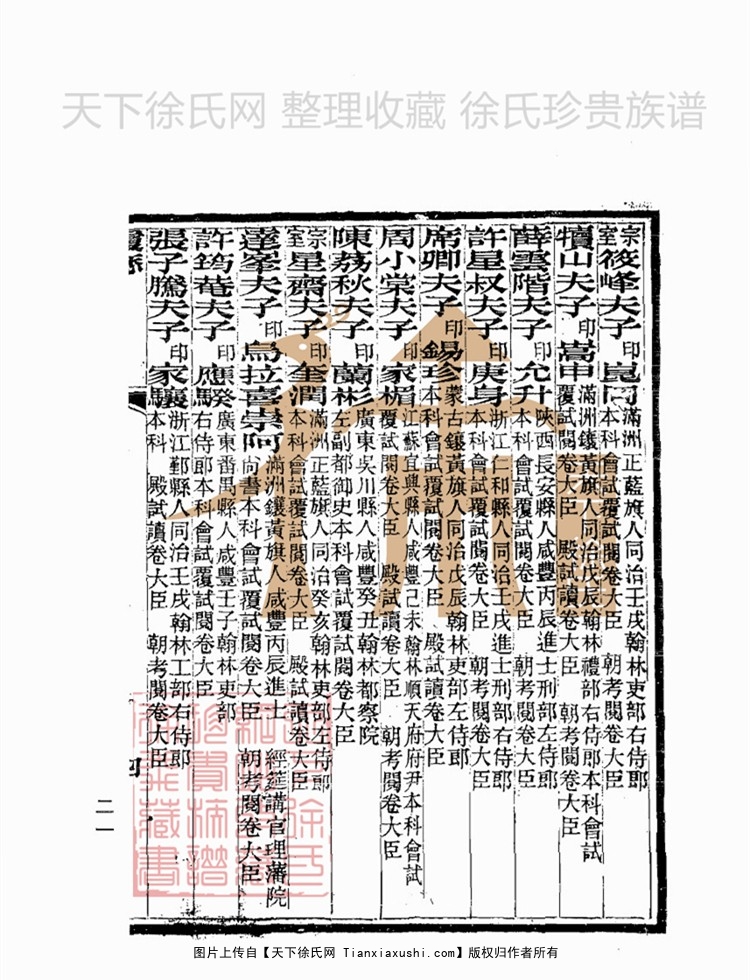 天下徐氏网 整理收藏 徐氏珍贵族谱
宗室筱峰夫子印崑冈 滿洲正藍旗人同治壬戌翰林吏部右侍郎
本科會試覆試閱卷大臣 朝考閱卷大臣
犢山夫子印嵩申 滿洲鑲黃旗人同治戊辰翰林禮部右侍郎本科會試
覆試閱卷大臣 殿試讀卷大臣 朝考閱卷大臣
薛雲階夫子印允升 陝西長安縣人咸豐丙辰進士刑部左侍郎
本科會試覆試閱卷大臣 朝考閱卷大臣
許星叔夫子印庚身 浙江仁和縣人同治壬戌進士刑部右侍郎
本科會試覆試閱卷大臣 朝考閱卷大臣
席卿夫子印錫珍 蒙古鑲黃旗人同治戊辰翰林吏部左侍郎
本科會試覆試閱卷大臣 殿試讀卷大臣
周小棠夫子印家楣 江蘇宜興縣人咸豐己未翰林順天府府尹本科會試
覆試閱卷大臣 殿試讀卷大臣 朝考閱卷大臣
陳荔秋夫子印蘭彬 廣東吳川縣人咸豐癸丑翰林都察院
左副都御史本科會試覆試閱卷大臣
宗室星齋夫子印奎潤 滿洲正藍旗人同治癸亥翰林吏部左侍郎
本科會試覆試閱卷大臣 殿試讀卷大臣
達峯夫子印烏拉喜崇阿 滿洲鑲黃旗人咸豐丙辰進士 經筵講官理藩院
尚書本科會試覆試閱卷大臣 朝考閱卷大臣
許筠菴夫子印應騤 廣東番禺縣人咸豐壬子翰林吏部
右侍郎本科會試覆試閱卷大臣
張子騰夫子印家驤 浙江鄞縣人同治壬戌翰林工部右侍郎
本科 殿試讀卷大臣 朝考閱卷大臣
履歷
四
二一
徐
图片上传自【天下徐氏网 Tianxiaxushi.com】版权归作者所有